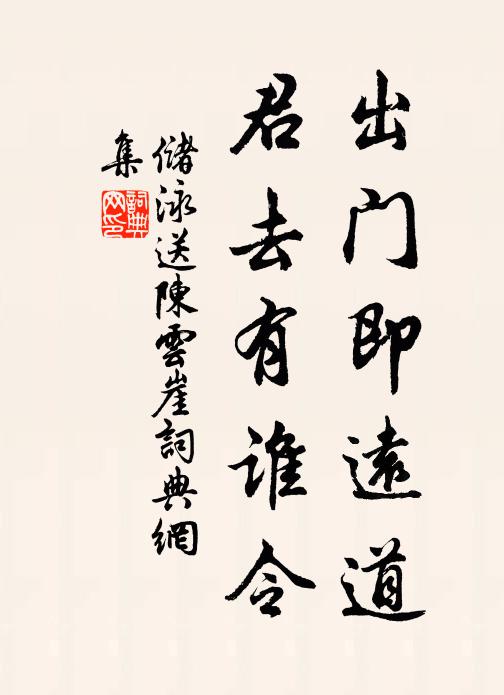 出门即遠道
君去有谁令
儲泳送陳雲崖詞典網
集
詞典
网印